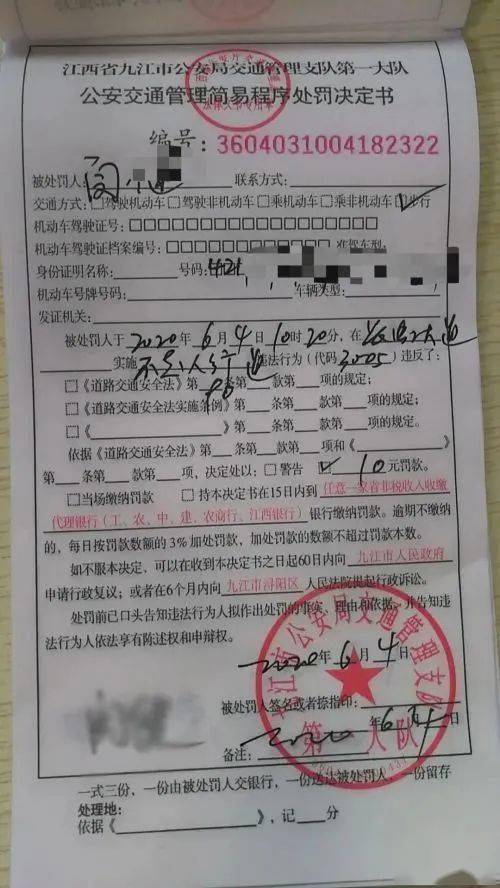 江西省九江市公安局交通管理支队第一大队
公安交通管理简易程序处罚决定书
编号：3604031004182322
被处罚人：闵 联系方式：
交通方式：□驾驶机动车□驾驶非机动车□乘机动车□乘非机动车☑步行
机动车驾驶证号：□□□□□□□□□□□□□□□□□□
机动车驾驶证档案编号：□□□□□□□□□□□□ 准驾车型：
身份证明名称： 号码：421
机动车号牌号码： 车辆类型：
发证机关：
被处罚人于2020年6月4日10时20分，在 大道
实施不走人行道违法行为（代码3005）违反了：
□《道路交通安全法》第 条第 款第 项的规定；
□《道路交通安全法实施条例》第 条第 款第 项的规定；
□《 》第 条第 款第 项的规定。
依据《道路交通安全法》第 条第 款第 项和《 》
第 条第 款第 项，决定处以：□警告 ☑10元罚款。
□当场缴纳罚款 □持本决定书在15日内到任意一家省非税收入收缴
代理银行（工、农、中、建、农商行、江西银行）银行缴纳罚款。逾期不缴纳
的，每日按罚款数额的3%加处罚款，加处罚款的数额不超过罚款本数。
如不服本决定，可以在收到本决定书之日起60日内向九江市人民政府
申请行政复议；或者在6个月内向九江市浔阳区人民法院提起行政诉讼。
处罚前已口头告知违法行为人拟作出处罚的事实、理由和依据，并告知违
法行为人依法享有陈述权和申辩权。
2020年6月4日
九江市公安局交通管理支队
第一大队
被处罚人签名或者捺指印：
2020年6月4日
备注：
一式三份，一份由被处罚人交银行，一份送达被处罚人，一份留存
处理地：
依据《 》，记 分